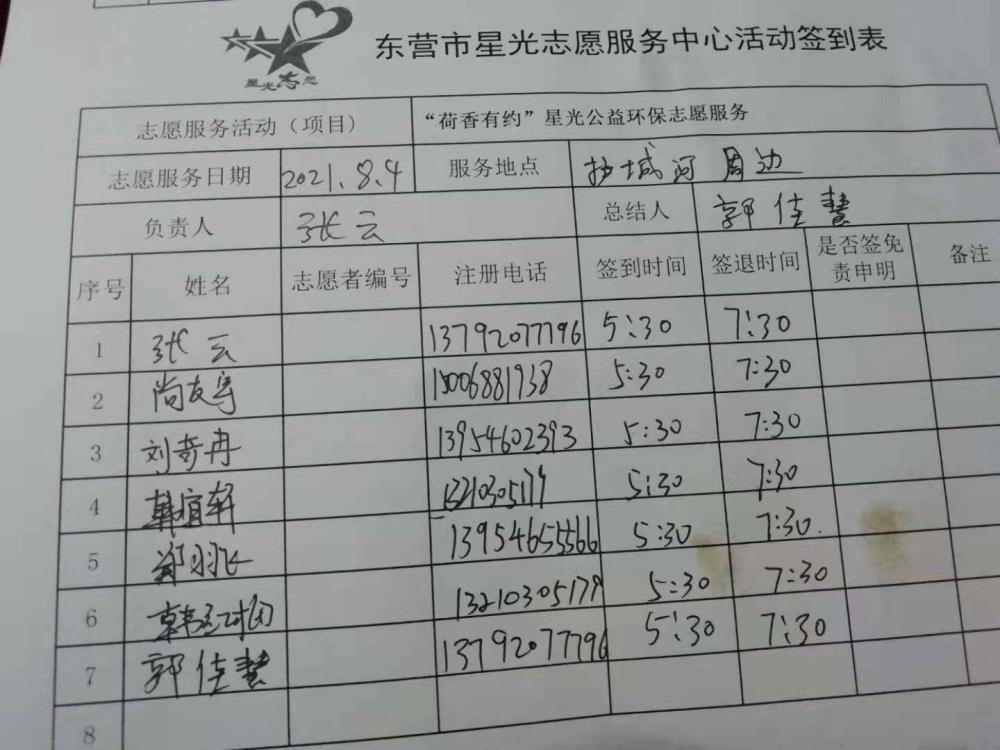 星光志愿
东营市星光志愿服务中心活动签到表
志愿服务活动（项目） “荷香有约”星光公益环保志愿服务
志愿服务日期 2021.8.4 服务地点 护城河周边
负责人 张云 总结人 郭佳慧
序号 姓名 志愿者编号 注册电话 签到时间 签退时间 是否签免责申明 备注
1 张云 13792077796 5:30 7:30
2 尚友宇 15006881938 5:30 7:30
3 刘奇冉 13954602393 5:30 7:30
4 韩宜轩 13210305179 5:30 7:30
5 郑羽飞 13954655566 5:30 7:30
6 13210305179 5:30 7:30
7 郭佳慧 13792077796 5:30 7:30
8